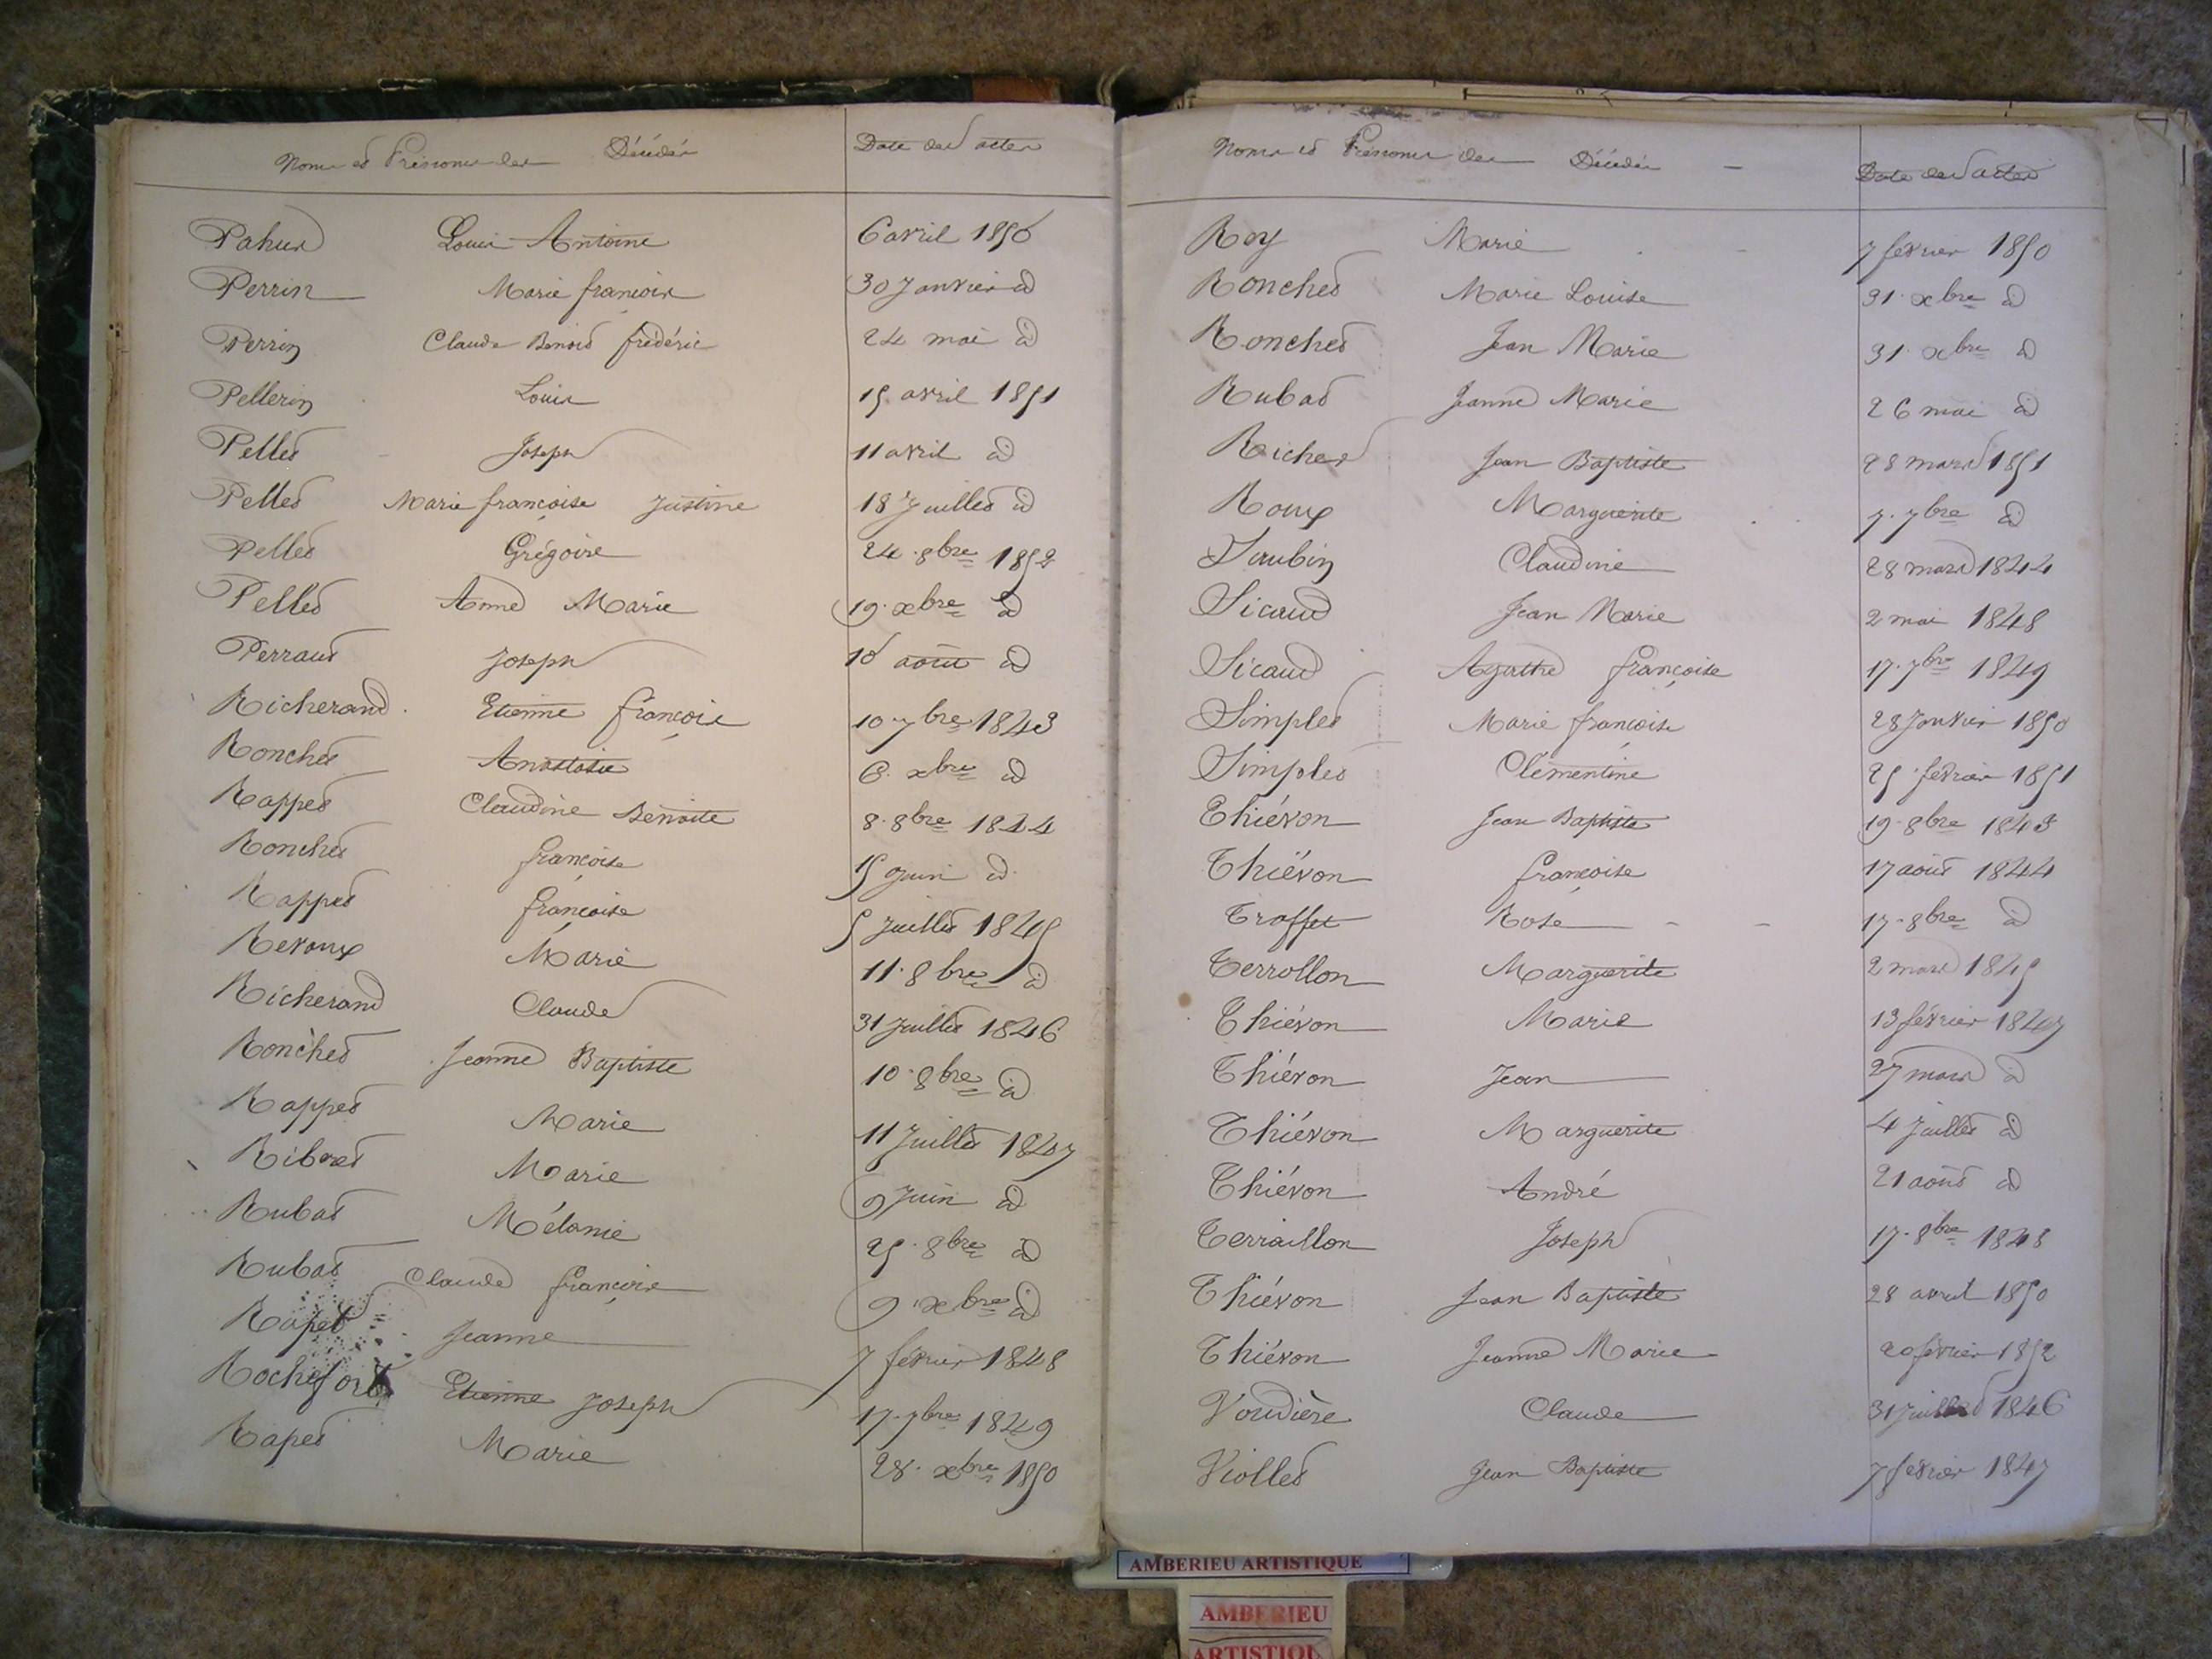 Noms et Prénoms des Décédés Date des actes
Pahud Louis Antoine 6 avril 1850
Perrin Marie françois 30 Janvier d
Perrin Claude Benoit frédéric 24 mai d
Pellerin Louis 15 avril 1851
Pellet Joseph 11 avril d
Pellet Marie françoise Justine 18 Juillet d
Pellet Grégoire 24 8bre 1852
Pellet Anne Marie 19 xbre d
Perraud Joseph août d
Richerand Etienne françois 10 7bre 1843
Ronchet Anastasie 6 xbre d
Rappet Claudine Benoite 8 8bre 1844
Ronchet françoise 15 Juin d
Rappet françoise 5 Juillet 1845
Revoux Marie 11 8bre d
Richerand Claude 31 Juillet 1846
Ronchet Jeanne Baptiste 10 8bre d
Rappet Marie 11 Juillet 1847
Ribret Marie 9 Juin d
Rubat Mélanie 25 8bre d
Rubat Claude françois 9 xbre d
Rapet Jeanne 7 février 1848
Rochefort Etienne Joseph 17 7bre 1849
Rapet Marie 28 xbre 1850
Noms et Prénoms des Décédés Date des actes
Rey Marie 7 février 1850
Ronchet Marie Louise 31 xbre d
Ronchet Jean Marie 31 xbre d
Rubat Jeanne Marie 26 mai d
Richer Jean Baptiste 28 mars 1851
Roux Marguerite 7 7bre d
Saubin Claudine 28 mars 1844
Sicaud Jean Marie 2 mai 1848
Sicaud Agathe françoise 17 7bre 1849
Simplet Marie françoise 28 Janvier 1850
Simplet Clémentine 25 février 1851
Thiévon Jean Baptiste 19 8bre 1843
Thiévon françoise 17 août 1844
Troffet Rose 17 8bre d
Terrollon Marguerite 2 mars 1845
Thiévon Marie 13 février 1847
Thiévon Jean 27 mars d
Thiévon Marguerite 4 Juillet d
Thiévon André 21 août d
Terraillon Joseph 17 8bre 1848
Thiévon Jean Baptiste 28 avril 1850
Thiévon Jeanne Marie 20 février 1852
Voudière Claude 31 Juillet 1846
Viollet Jean Baptiste 7 février 1847
AMBERIEU ARTISTIQUE
AMBERIEU
ARTISTIQU